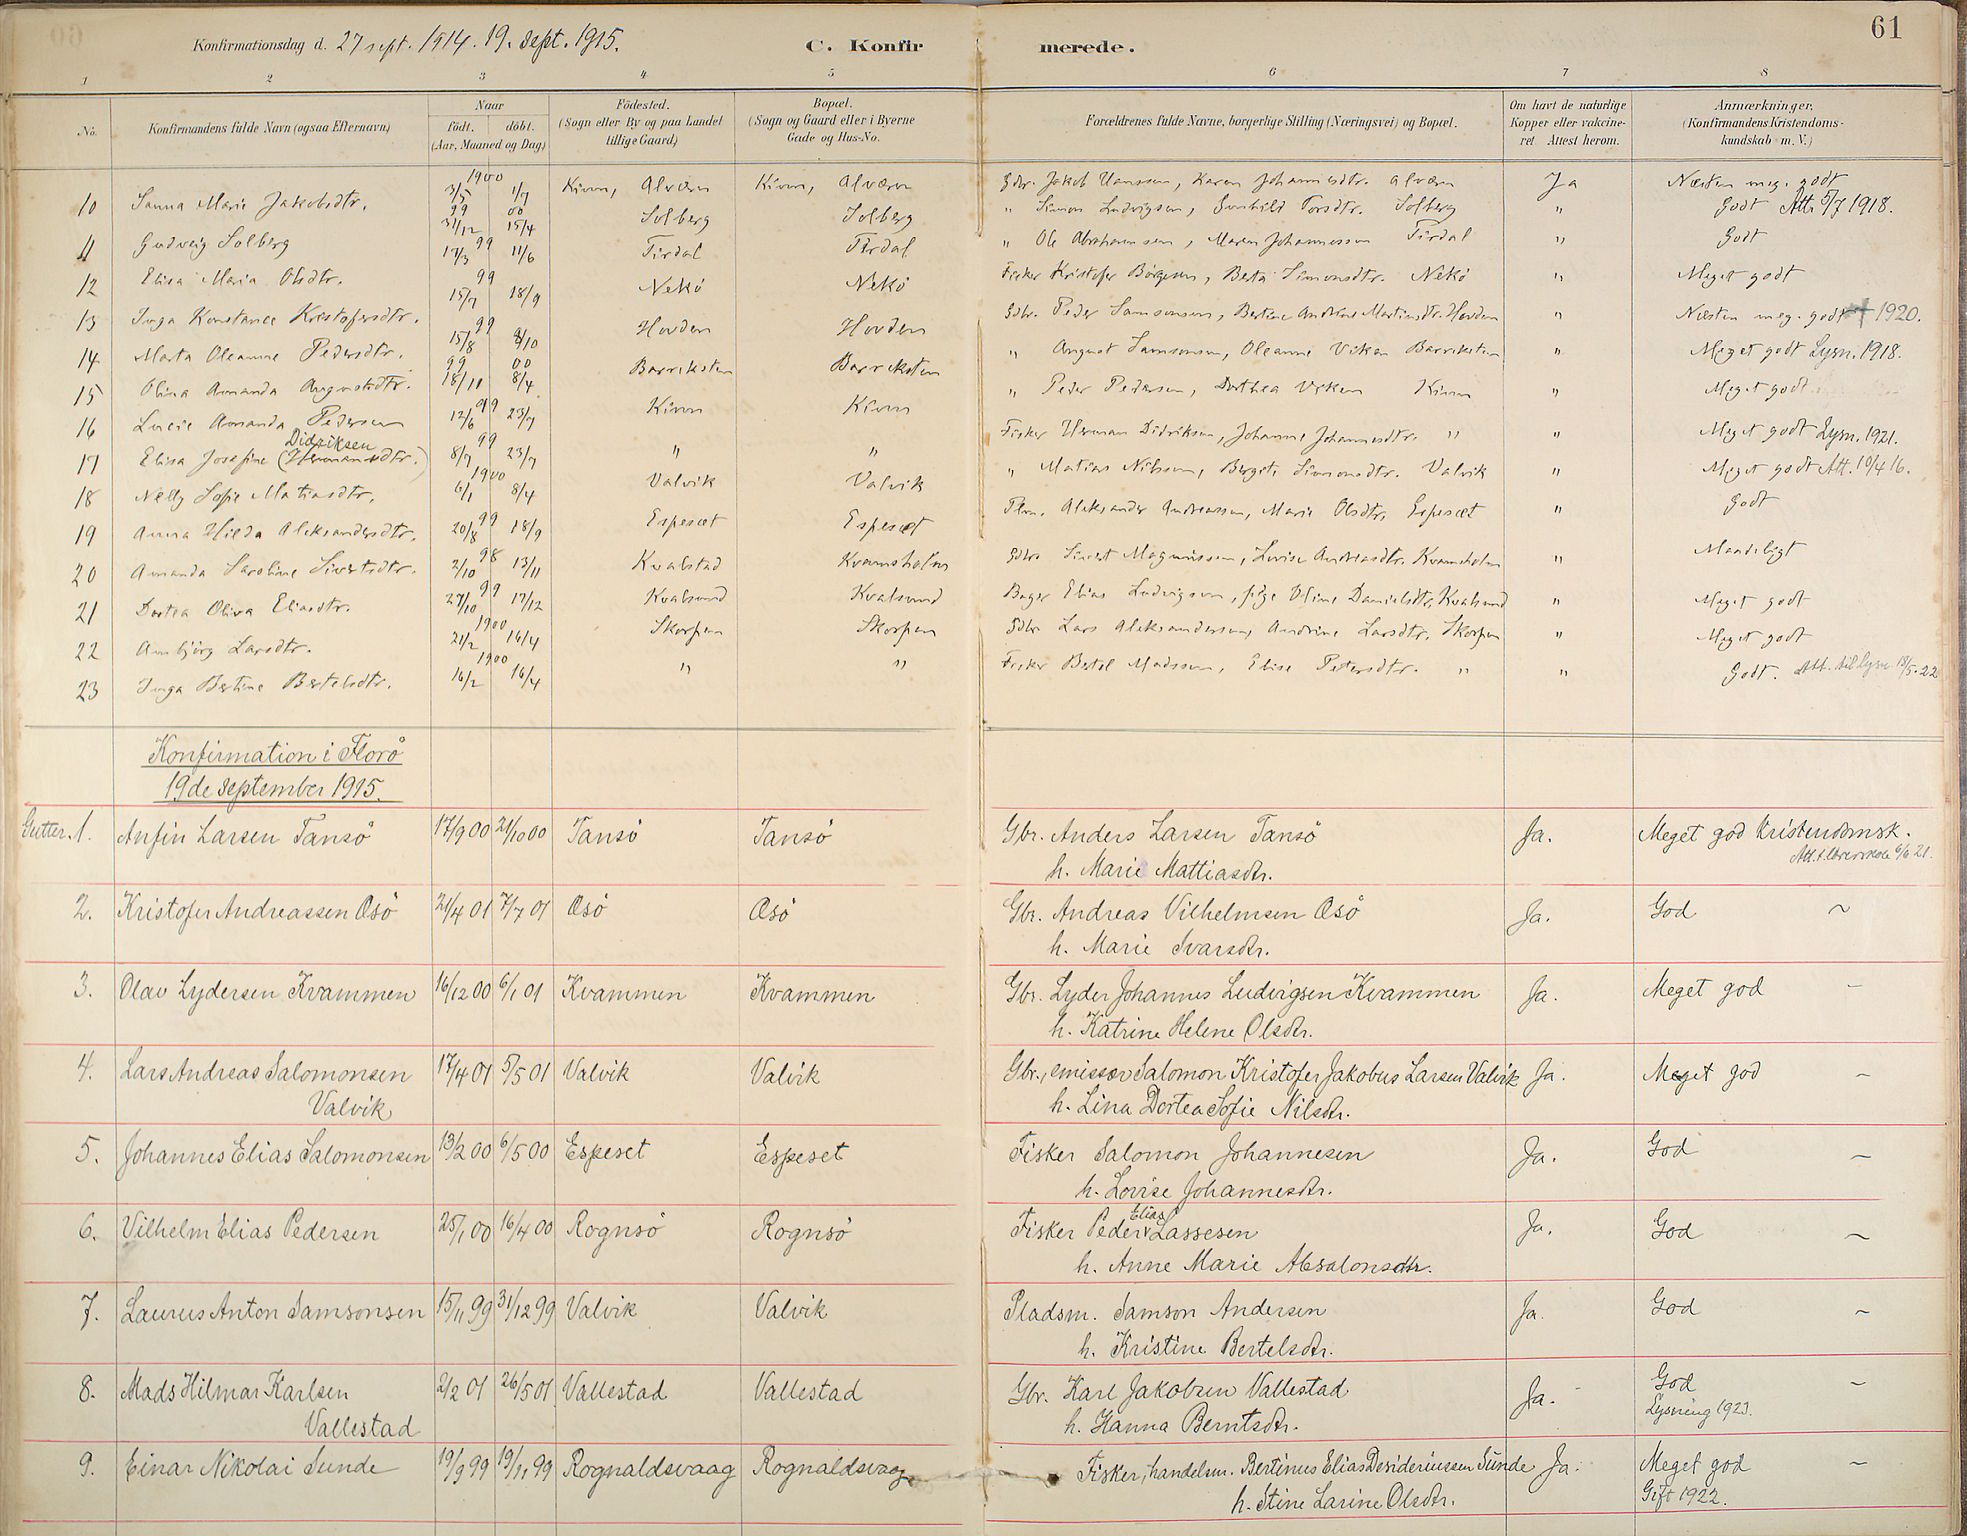 61
Konfirmationsdag d. 27 sept. 1914. 19. Sept. 1915. C. Konfirmerede.
1 2 3 4 5 6 7 8
No. Konfirmandens fulde Navn (ogsaa Efternavn) Naar födt. döbt. (Aar, Maaned og Dag) Födested. (Sogn eller By og paa Landet tillige Gaard) Bopæl. (Sogn og Gaard eller i Byerne Gade og Hus-No. Forældrenes fulde Navne, borgerlige Stilling (Næringsvei) og Bopæl. Om havt de naturlige Kopper eller vakcineret. Attest herom. Anmærkninger. (Konfirmandens Kristendomskundskab m. V.)
10 Sanna Marie Jakobsdtr. 1900 3/5 1/7 Kinn, Alværn Kinn, Alværn Gdbr. Jakob Hanssen, Karen Johannesdtr. Alværn Ja Næsten meg. godt
11 Gudveig Solberg 99 31/12 00 15/4 Solberg Solberg " Simon Ludvigsen, Gunhild Torsdtr. Solberg " Godt Att. 5/7 1918.
12 Elisa Maria Olsdtr. 99 17/3 11/6 Tirdal Tirdal " Ole Abrahamsen, Maren Johannessen Tirdal " Godt
13 Inga Konstance Kristofersdtr. 99 15/7 18/9 Nekö Nekö Fisker Kristofer Börgesen, Berta Simonsdtr. Nekö " Meget godt
14 Marta Oleanne Pedersdtr. 99 15/8 8/10 Hovden Hovden Gdbr. Peder Samsonsen, Bertine Andrine Martinsdtr. Hovden " Næsten meg. godt 1920.
15 Olina Amanda Augustsdtr. 99 18/11 00 8/4 Barreksten Barreksten " August Samsonsen, Oleanne Viken Barreksten " Meget godt Lysn. 1918.
16 Lucie Amanda Pedersen 99 12/6 23/7 Kinn Kinn " Peder Pedersen, Dorthea Viken Kinn " Meget godt
17 Elisa Josefine (Hermansdtr.) Didriksen 99 8/7 23/7 " " Fisker Herman Didriksen, Johanne Johannesdtr. " " Meget godt Lysn. 1921.
18 Nelly Sofie Matiasdtr. 1900 6/1 8/4 Valvik Valvik " Matias Nilssen, Bergete Simonsdtr. Valvik " Meget godt Att. 10/4 16.
19 Anna Hilda Aleksandersdtr. 99 20/8 18/9 Espeset Espeset Plm. Aleksander Andreassen, Marie Olsdtr. Espeset " Godt
20 Amanda Saroline Sivertsdtr. 98 2/10 13/11 Kvalstad Kvamsholm Gdbr. Sivert Magnussen, Lovise Andreasdtr. Kvamsholm " Maadeligt
21 Dortea Oliva Eliasdtr. 99 27/10 17/12 Kvalsund Kvalsund Bager Elias Ludvigsen, pige Oline Danielsdtr. Kvalsund " Meget godt
22 Annbjörg Larsdtr. 1900 21/2 16/4 Skorpen Skorpen Gdbr Lars Aleksandersen, Andrine Larsdtr. Skorpen " Meget godt
23 Inga Bertine Bertelsdtr. 1900 16/2 16/4 " " Fisker Bertel Madssen, Elise Petersdtr. " " Godt. Att. til lysn. 18/5.22
Konfirmation i Florö
19de September 1915.
Gutter. 1. Anfin Larsen Tansö 17/9 00 21/10 00 Tansö Tansö Gbr. Anders Larsen Tansö Ja. Meget god Kristendomsk.
h. Marie Mattiasdtr. Att. t. lærerskole 6/6 21.
2. Kristofer Andreassen Osö 21/4 01 7/7 01 Osö Osö Gbr. Andreas Vilhelmsen Osö Ja. God ~
h. Marie Ivarsdtr.
3. Olav Lydersen Kvammen 16/12 00 6/1 01 Kvammen Kvammen Gbr. Lyder Johannes Ludvigsen Kvammen Ja. Meget god -
h. Katrine Helene Olsdtr.
4. Lars Andreas Salomonsen 17/4 01 5/5 01 Valvik Valvik Gbr., emissær Salomon Kristofer Jakobus Larsen Valvik Ja. Meget god -
Valvik h. Lina Dortea Sofie Nilsdtr.
5. Johannes Elias Salomonsen 13/2 00 6/5 00 Espeset Espeset Fisker Salomon Johannesen Ja. God ~
h. Lovise Johannesdtr.
6. Vilhelm Elias Pedersen 25/1 00 16/4 00 Rognsö Rognsö Fisker Peder Elias Lassesen Ja. God ~
h. Anne Marie Absalonsdtr.
7. Laurus Anton Samsonsen 15/11 99 31/12 99 Valvik Valvik Pladsm. Samson Andersen Ja. God ~
h. Kristine Bertelsdtr.
8. Mads Hilmar Karlsen 2/2 01 26/5 01 Vallestad Vallestad Gbr. Karl Jakobsen Vallestad Ja. God -
Vallestad h. Hanna Berntsdtr. Lysning 1923.
9. Einar Nikolai Sunde 19/9 99 19/11 99 Rognaldsvaag Rognaldsvaag Fisker, handelsm. Bertinus Elias Desideriussen Sunde Ja. Meget god -
h. Stine Larine Olsdtr. Gift 1922.